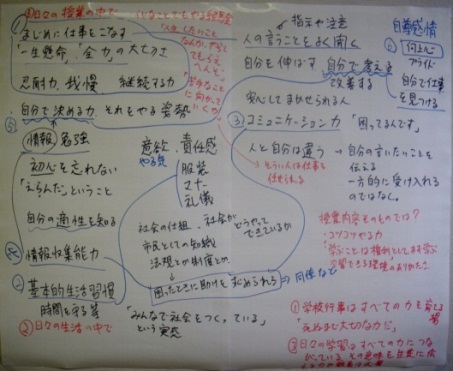 日々の授業の中で
まじめに仕事をこなす
「一生懸命」「全力」の大切さ
忍耐力、我慢 継続する力
自分で決める力 それをやる姿勢
情報 勉強
初心を忘れない
「えらんだ」ということ
自分の適性を知る
情報収集能力
② 基本的生活習慣
時間を守る等
② 日々の生活の中で
意欲、責任感
やる気
服装
マナー
礼儀
社会の仕組、社会が どうやってできているか
市民としての知識
法規とか制度とか
困ったときに助けを求められる
同僚など
「みんなで社会をつくっている」
という実感
指示や注意
人の言うことをよく聞く
自分を伸ばす 自分で考える
改善する
安心してまかせられる人
③ コミュニケーション力 「困ってるんです」
人と自分は違う → 自分の言いたいことを
伝える
一方的に受け入れる
のではなく。
自尊感情
何よりも
プライド
自分で仕事
を見つける
授業内容そのものでは?
・コツコツやる力
「学ぶことは権利として学ぶ
学習できる環境のありがたさ
① 学校行事はすべての力を育てる
場
「死ぬまで大切な力だ」
③ 日々の学習はすべての力につな
がっている